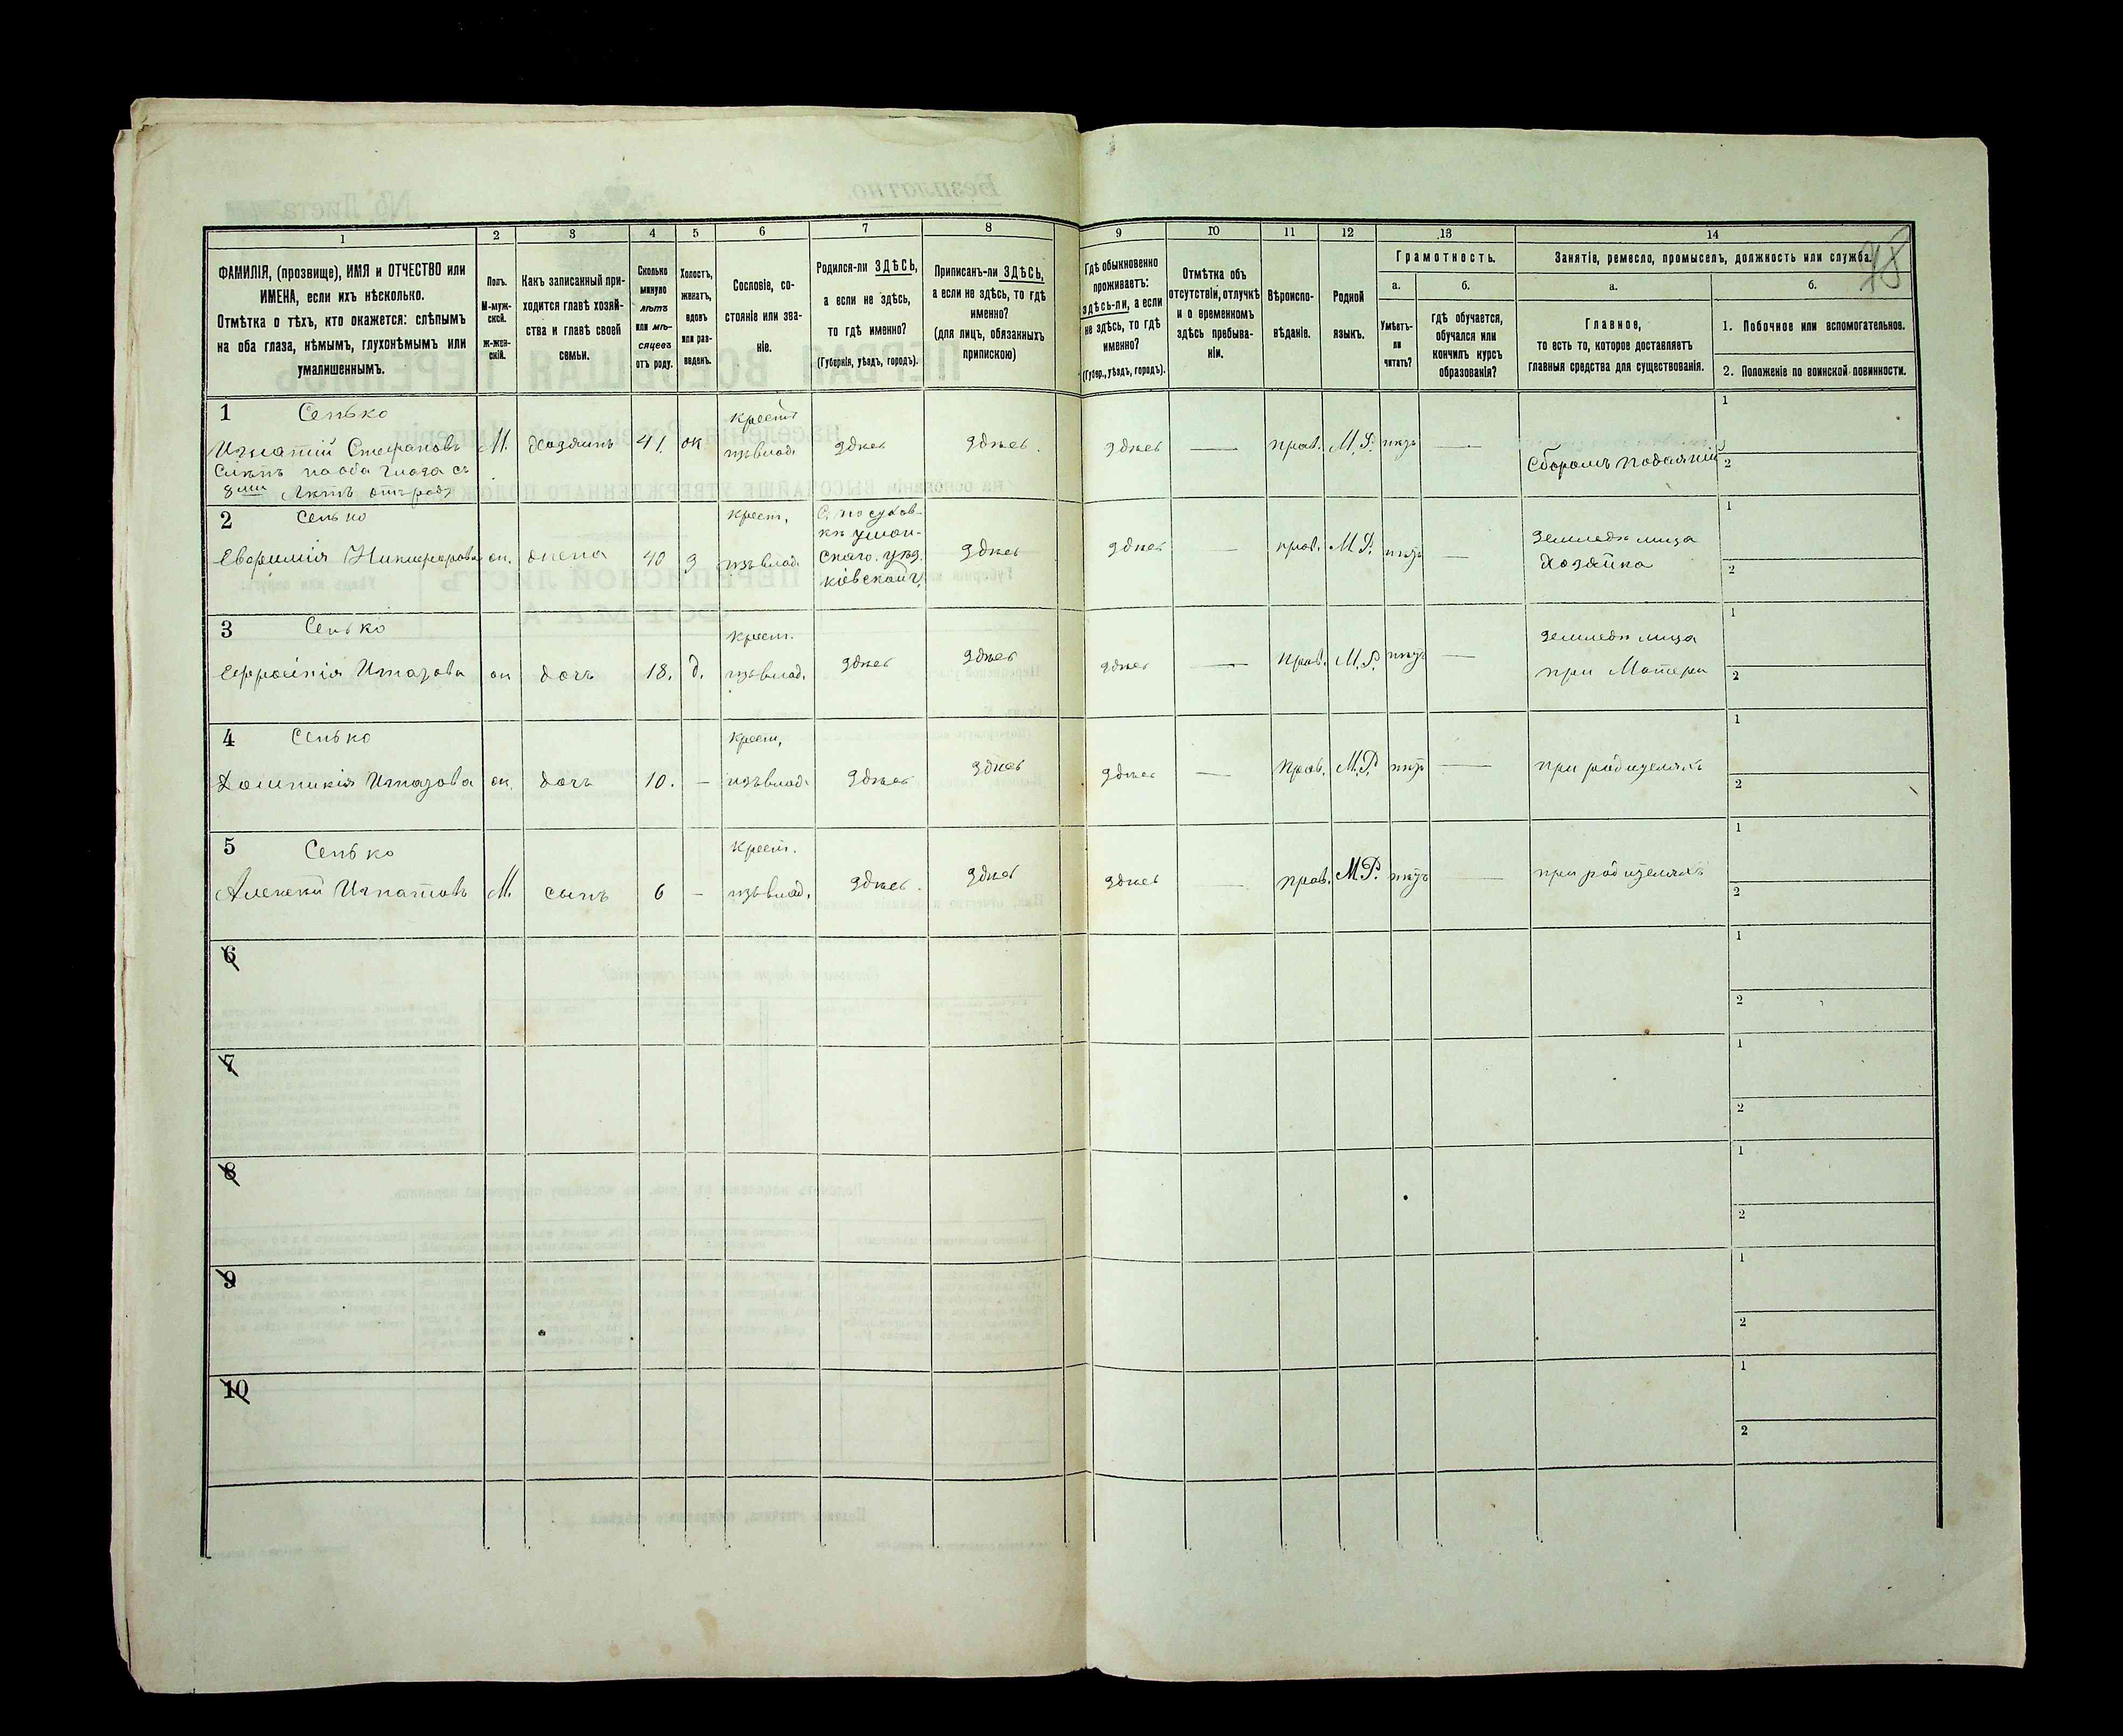 1 2 3 4 5 6 7 8 9 10 11 12 13 14
ФАМИЛІЯ, (прозвище), ИМЯ и ОТЧЕСТВО или
ИМЕНА, если ихъ нѣсколько.
Отмѣтка о тѣхъ, кто окажется: слѣпымъ
на оба глаза, нѣмымъ, глухонѣмымъ или
умалишеннымъ.
Полъ.
М-муж-
ской.
Ж-жен-
скій.
Какъ записанный при-
ходится главѣ хозяй-
ства и главѣ своей
семьи.
Сколько
минуло
лѣтъ
или мѣ-
сяцевъ
отъ роду.
Холостъ,
женатъ,
вдовъ
или раз-
веденъ.
Сословіе, со-
стояніе или зва-
ніе.
Родился-ли ЗДѢСЬ,
а если не здѣсь,
то гдѣ именно?
(Губернія, уѣздъ, городъ).
Приписанъ-ли ЗДѢСЬ,
а если не здѣсь, то гдѣ
именно?
(для лицъ, обязанныхъ
припискою)
Гдѣ обыкновенно
проживаетъ:
здѣсь-ли, а если
не здѣсь, то гдѣ
именно?
(Губер., уѣздъ, городъ).
Отмѣтка объ
отсутствіи, отлучкѣ
и о временномъ
здѣсь пребыва-
ніи.
Вѣроиспо-
вѣданіе.
Родной
языкъ.
Грамотность.
а.
Умѣетъ-
ли
читать?
б.
гдѣ обучается,
обучался или
кончилъ курсъ
образованія?
Занятіе, ремесло, промыселъ, должность или служба.
а.
Главное,
то есть то, которое доставляетъ
главныя средства для существованія.
б.
1. Побочное или вспомогательное.
2. Положеніе по воинской повинности.
1 Сенько крест 1
Игнатій Стефановъ М. Хозяинъ 41. ж изъ влад. здѣсь здѣсь. здѣсь — прав. М.Р. нѣтъ —
Слѣпъ на оба глаза съ Сборомъ подаяній 2
8ми Лѣтъ отъ роду
2 Сенько крест. С. Посухов- 1
ки Уман-
Евфимія Никифорова ж. жена 40 з изъ влад. скаго. уѣз. здѣсь здѣсь — прав. М.Р. нѣтъ — Земледѣлица
Кіевской г. Хозяйка 2
3 Сенько крест. 1
Ефросинія Игнатова ж дочь 18. д. изъ влад. здѣсь здѣсь здѣсь — прав. М.Р. нѣтъ — Земледѣлица
при Матери 2
4 Сенько крест. 1
Домникія Игнатова ж. дочь 10. — изъ влад. здѣсь здѣсь здѣсь — прав. М.Р. нѣтъ — при родителяхъ
2
5 Сенько крест. 1
Алексѣй Игнатовъ М. сынъ 6 — изъ влад. здѣсь. здѣсь здѣсь — прав. М.Р. нѣтъ — при родителяхъ
2
6 1
2
7 1
2
8 1
2
9 1
2
10 1
2